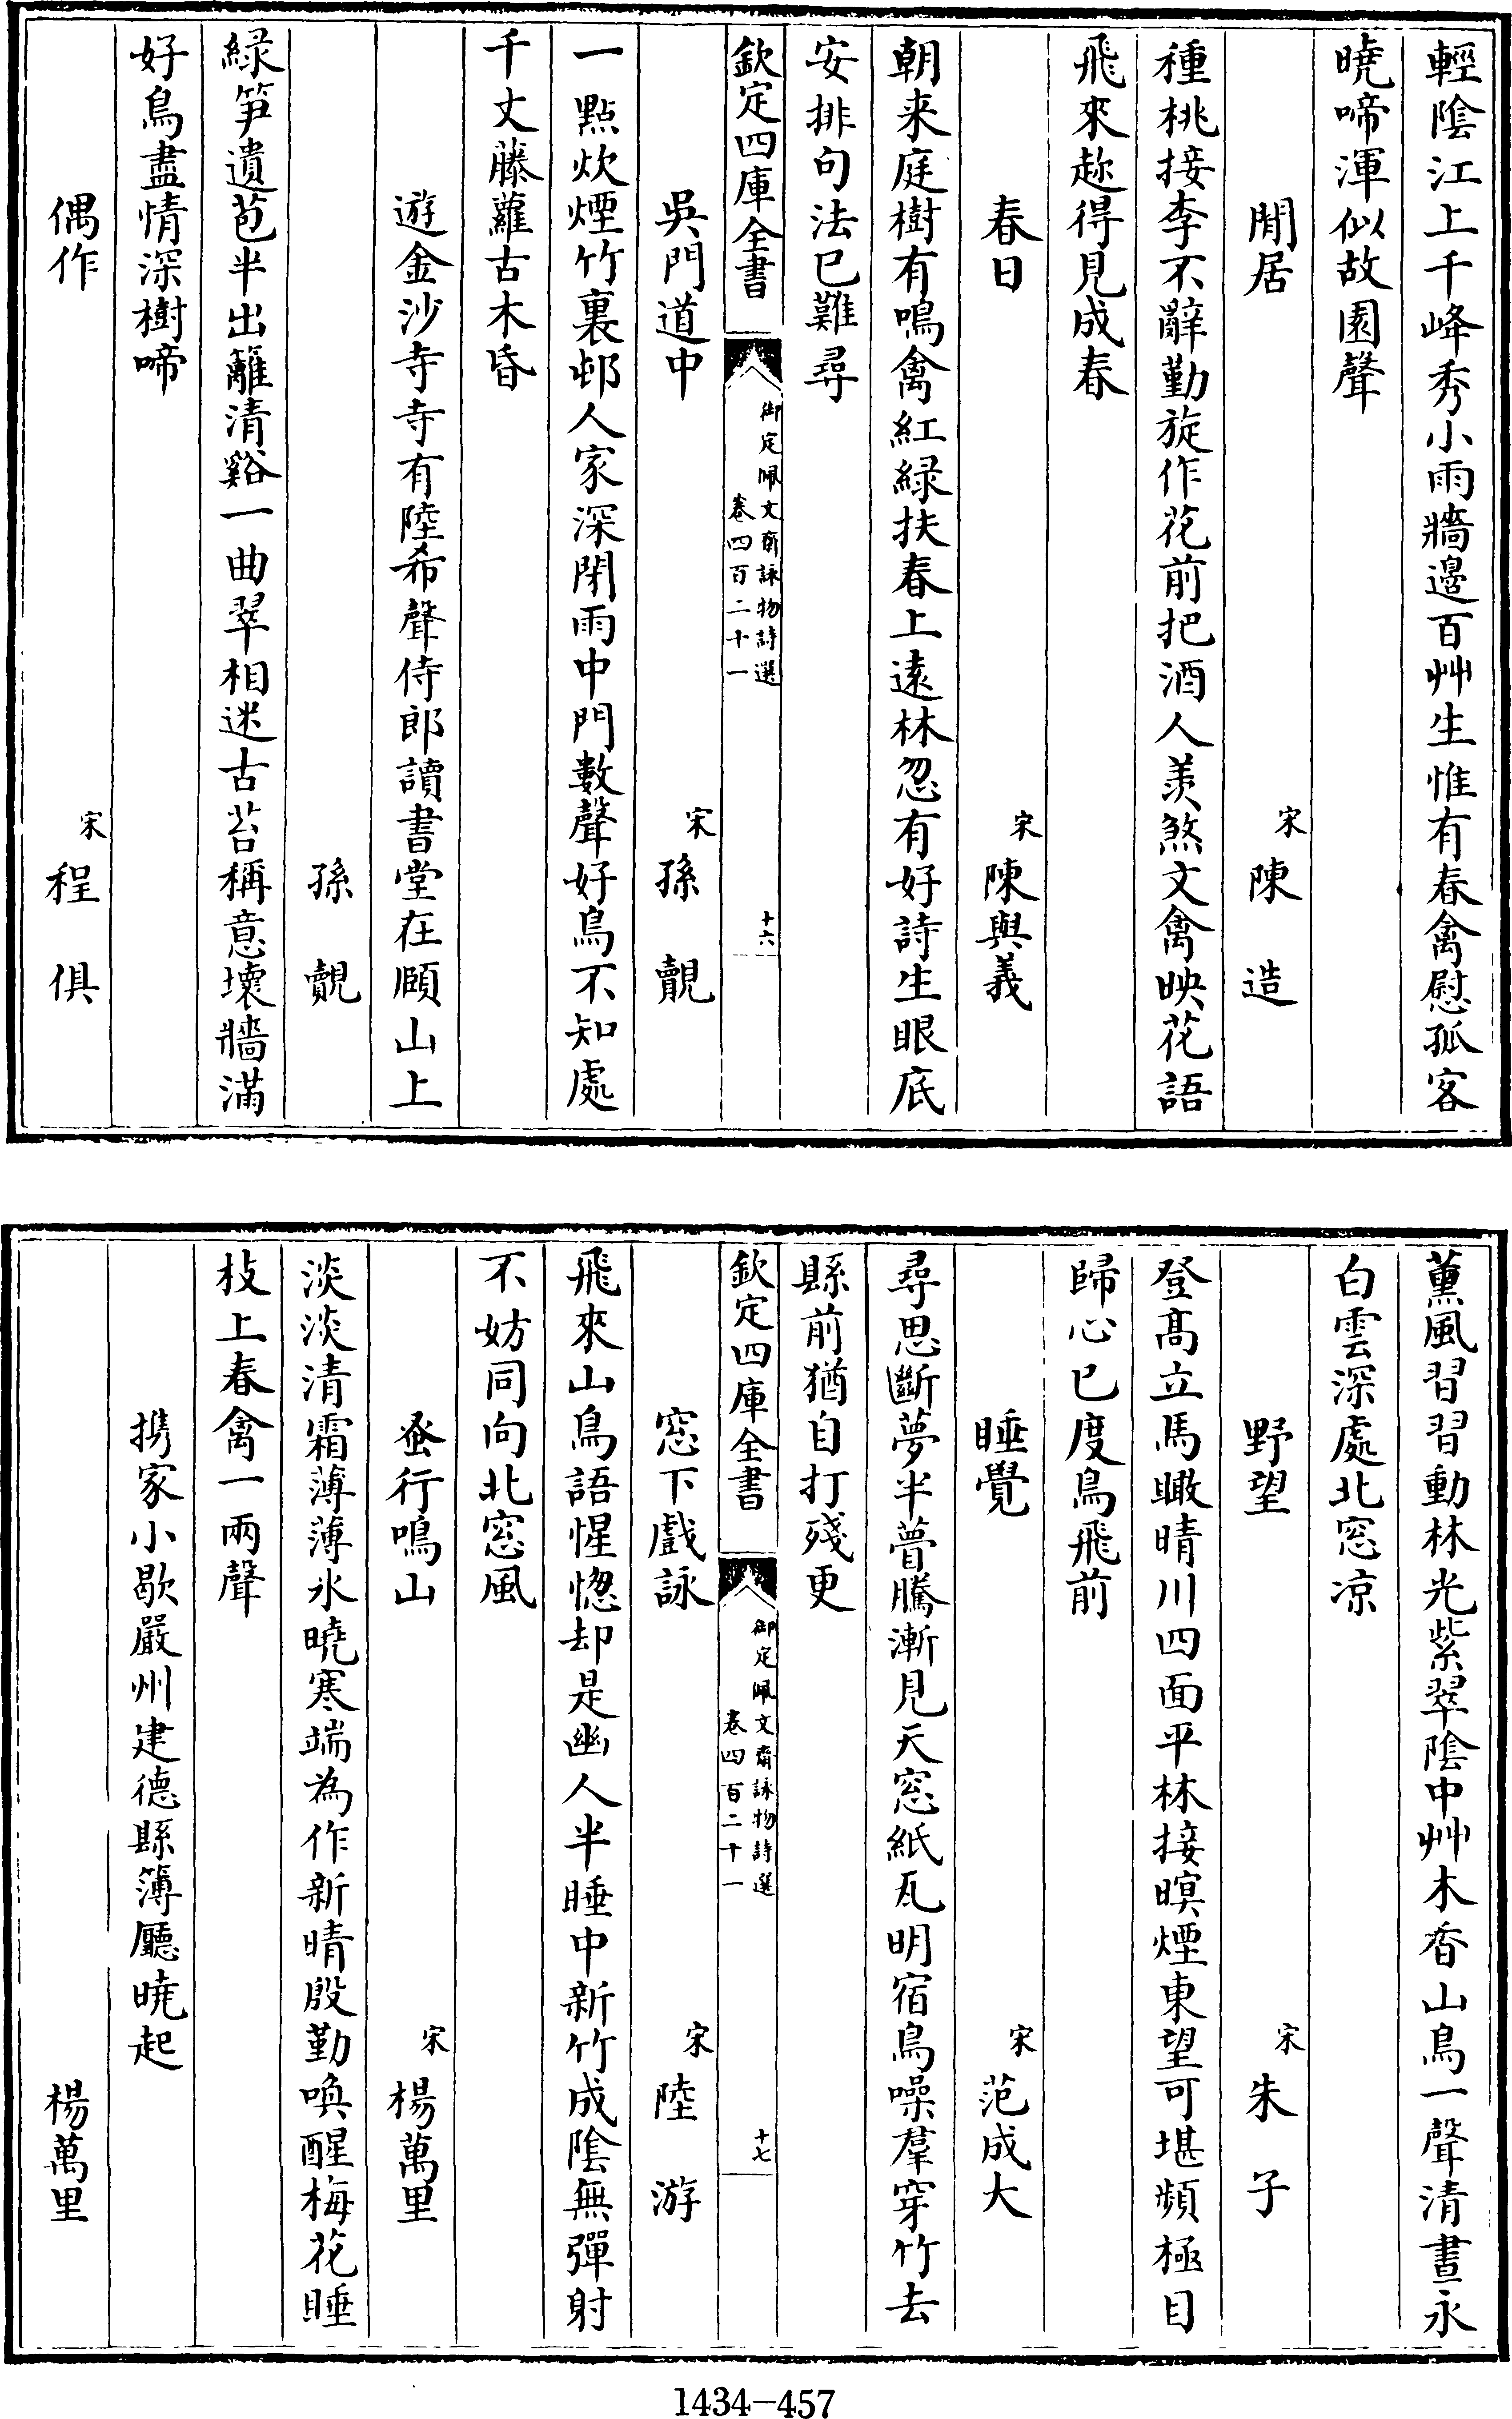 輕陰江上千峰秀小雨牆邊百艸生惟有春禽慰孤客
曉啼渾似故園聲
閒居 宋陳造
種桃接李不辭勤旋作花前把酒人羨煞文禽映花語
飛來趂得見成春
春日 宋陳與義
朝来庭樹有鳴禽紅緑扶春上遠林忽有好詩生眼底
安排句法已難尋
欽定四庫全書 御定佩文齋詠物詩選 卷四百二十一 十六
吳門道中 宋孫覿
一點炊煙竹裏邨人家深閉雨中門數聲好鳥不知處
千丈藤蘿古木昏
遊金沙寺寺有陸希聲侍郎讀書堂在頤山上
孫覿
緑笋遺苞半出籬清谿一曲翠相迷古苔稱意壞牆滿
好鳥盡情深樹啼
偶作 宋程俱
薰風習習動林光紫翠陰中艸木香山鳥一聲清晝永
白雲深處北窓凉
野望 宋朱子
登髙立馬瞰晴川四面平林接暝煙東望可堪頻極目
歸心已度鳥飛前
睡覺 宋范成大
尋思斷夢半瞢騰漸見天窓紙瓦明宿鳥噪羣穿竹去
縣前猶自打殘更
欽定四庫全書 御定佩文齋詠物詩選 卷四百二十一 十七
窓下戲詠 宋陸游
飛來山鳥語惺惚却是幽人半睡中新竹成陰無彈射
不妨同向北窓風
蚤行鳴山 宋楊萬里
淡淡清霜薄薄氷曉寒端為作新晴殷勤喚醒梅花睡
枝上春禽一兩聲
携家小歇嚴州建德縣簿廳曉起
楊萬里
1434-457